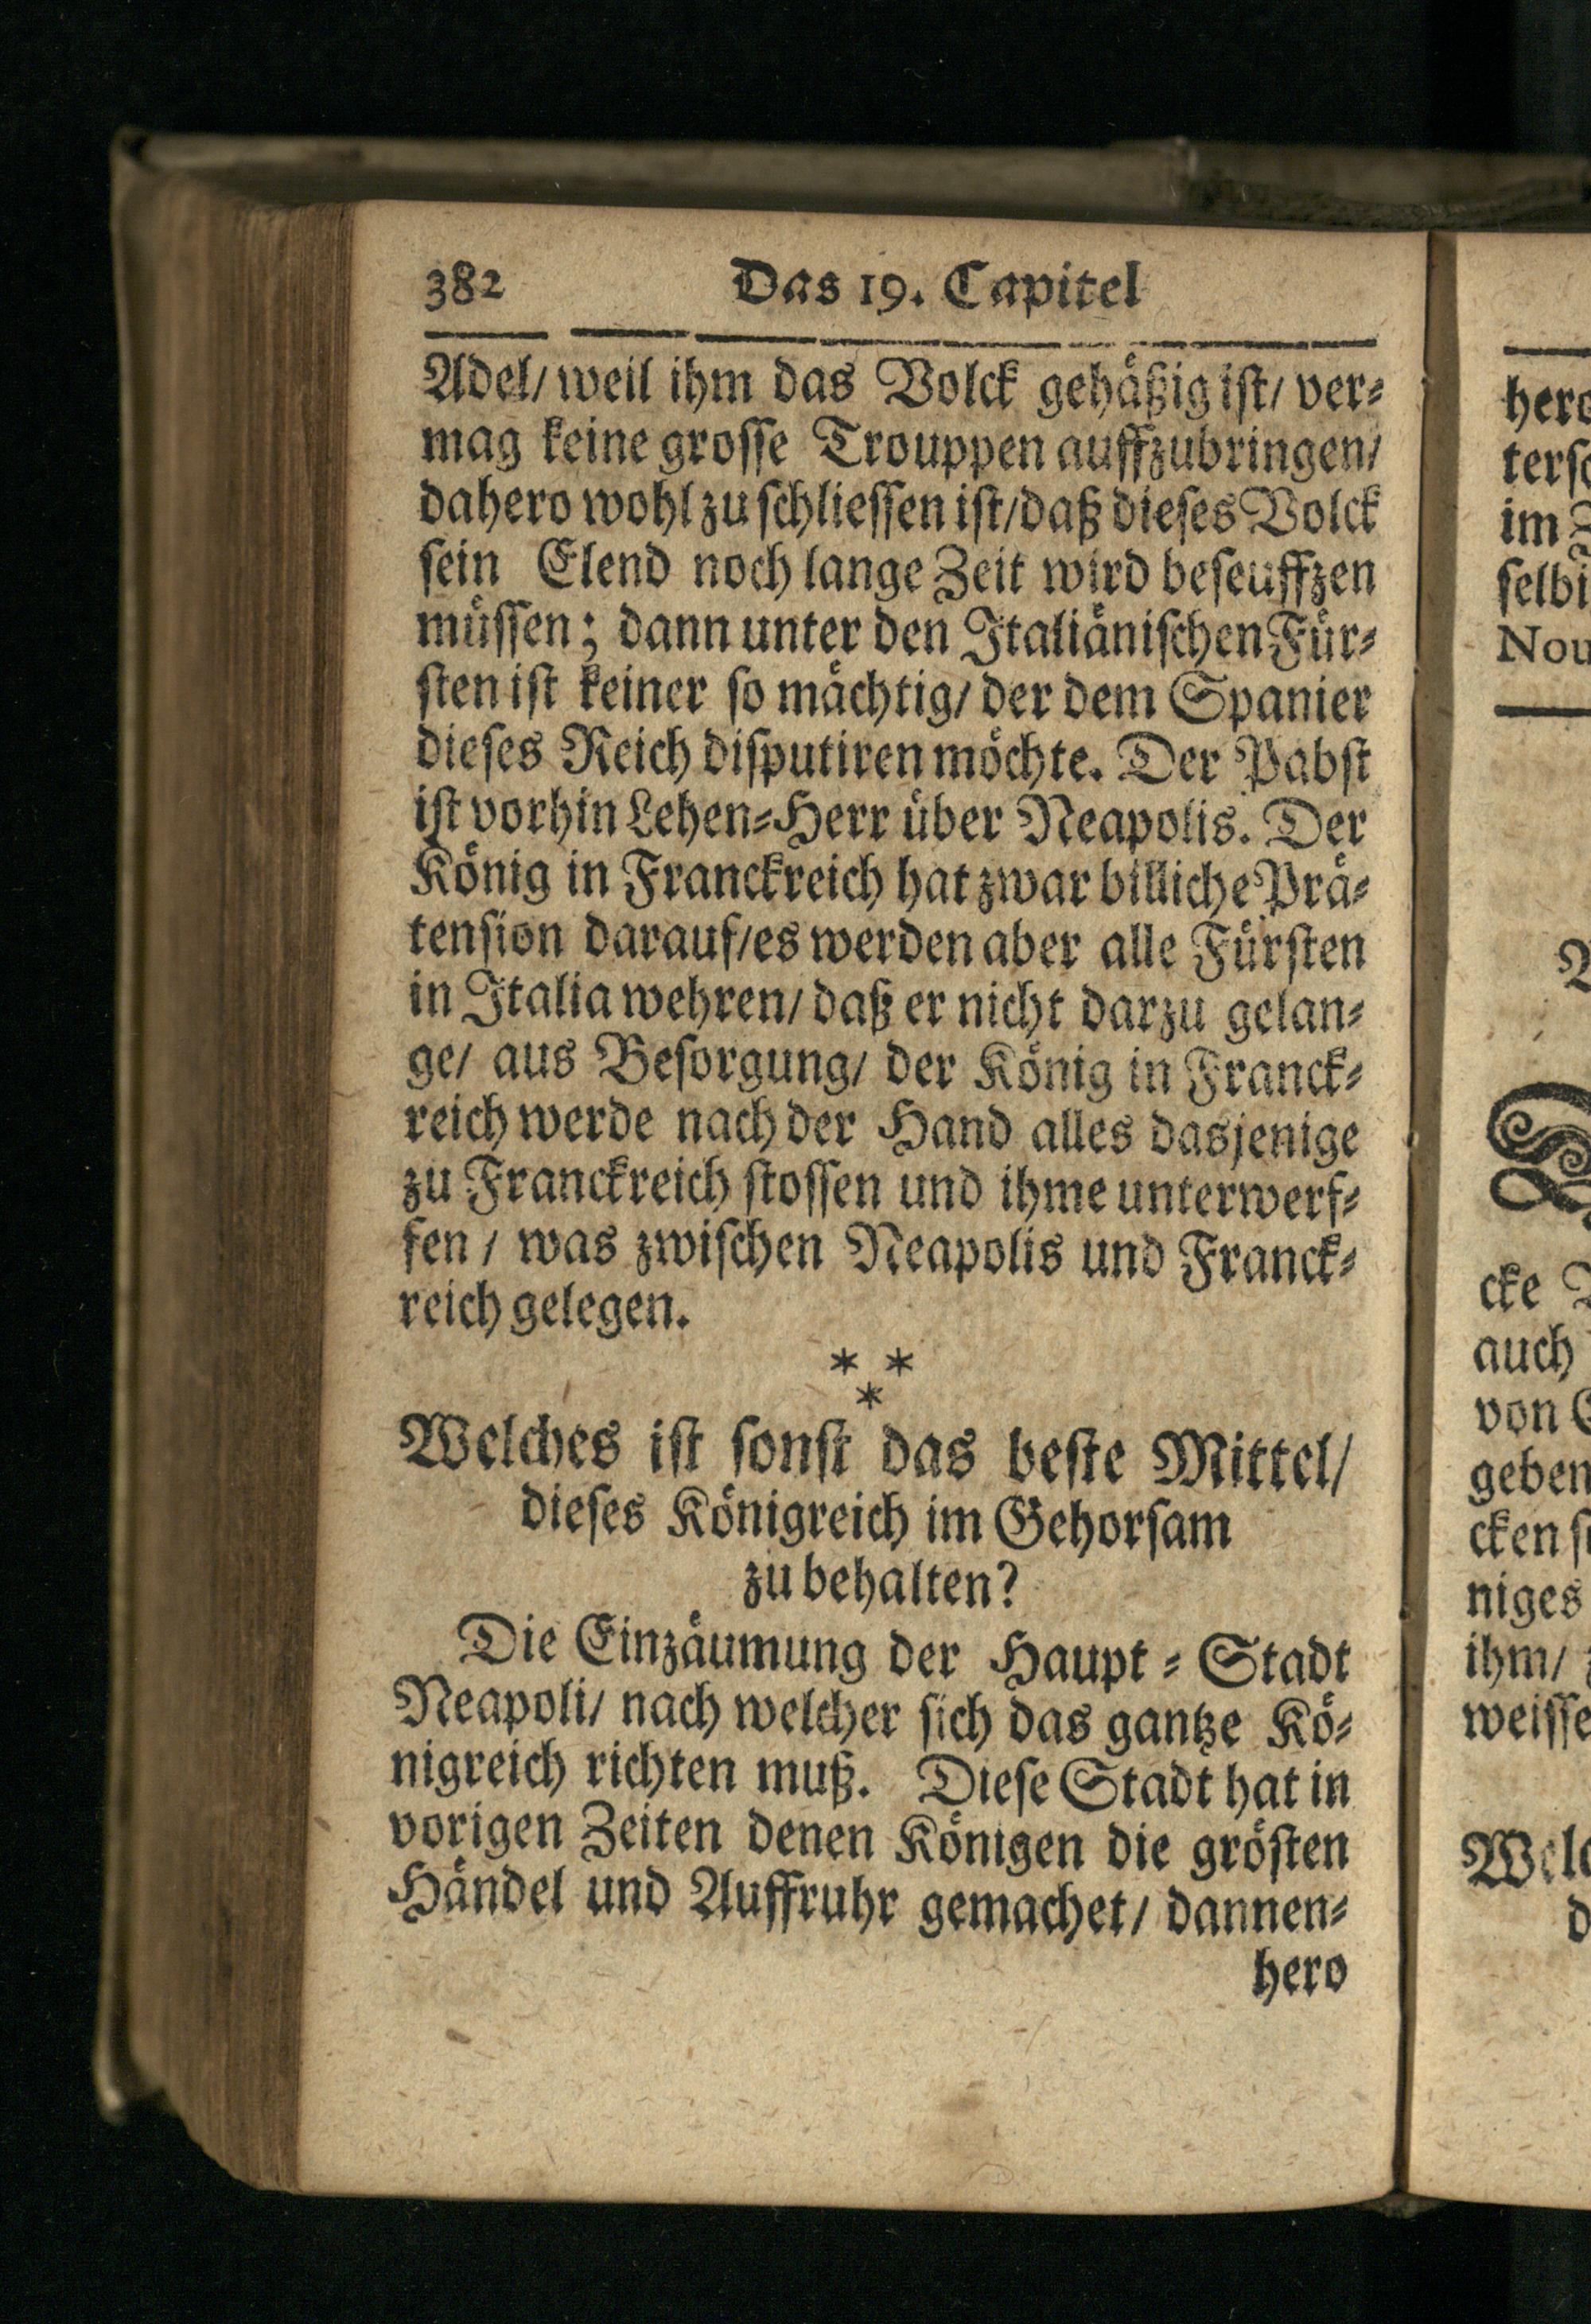 382 Das 19. Capitel
Adel/ weil ihm das Volck gehäßig ist/ ver-
mag keine grosse Trouppen auffzubringen/
dahero wohl zu schliessen ist/ daß dieses Volck
sein Elend noch lange Zeit wird beseuffzen
müssen; dann unter den Italiänischen Für-
sten ist keiner so mächtig/ der dem Spanier
dieses Reich disputiren möchte. Der Pabst
ist vorhin Lehen-Herr über Neapolis. Der
König in Franckreich hat zwar billiche Prä-
tension darauf/ es werden aber alle Fürsten
in Italia wehren/ daß er nicht darzu gelan-
ge/ aus Besorgung/ der König in Franck-
reich werde nach der Hand alles dasjenige
zu Franckreich stossen und ihme unterwerf-
fen / was zwischen Neapolis und Franck-
reich gelegen.
* *
*
Welches ist sonst das beste Mittel/
dieses Königreich im Gehorsam
zu behalten?
Die Einzäumung der Haupt-Stadt
Neapoli/ nach welcher sich das gantze Kö-
nigreich richten muß. Diese Stadt hat in
vorigen Zeiten denen Königen die grösten
Händel und Auffruhr gemachet/ dannen-
hero
im
selbi
Nou
cke
auch
von
geben
cken
niges
ihm/
weisse